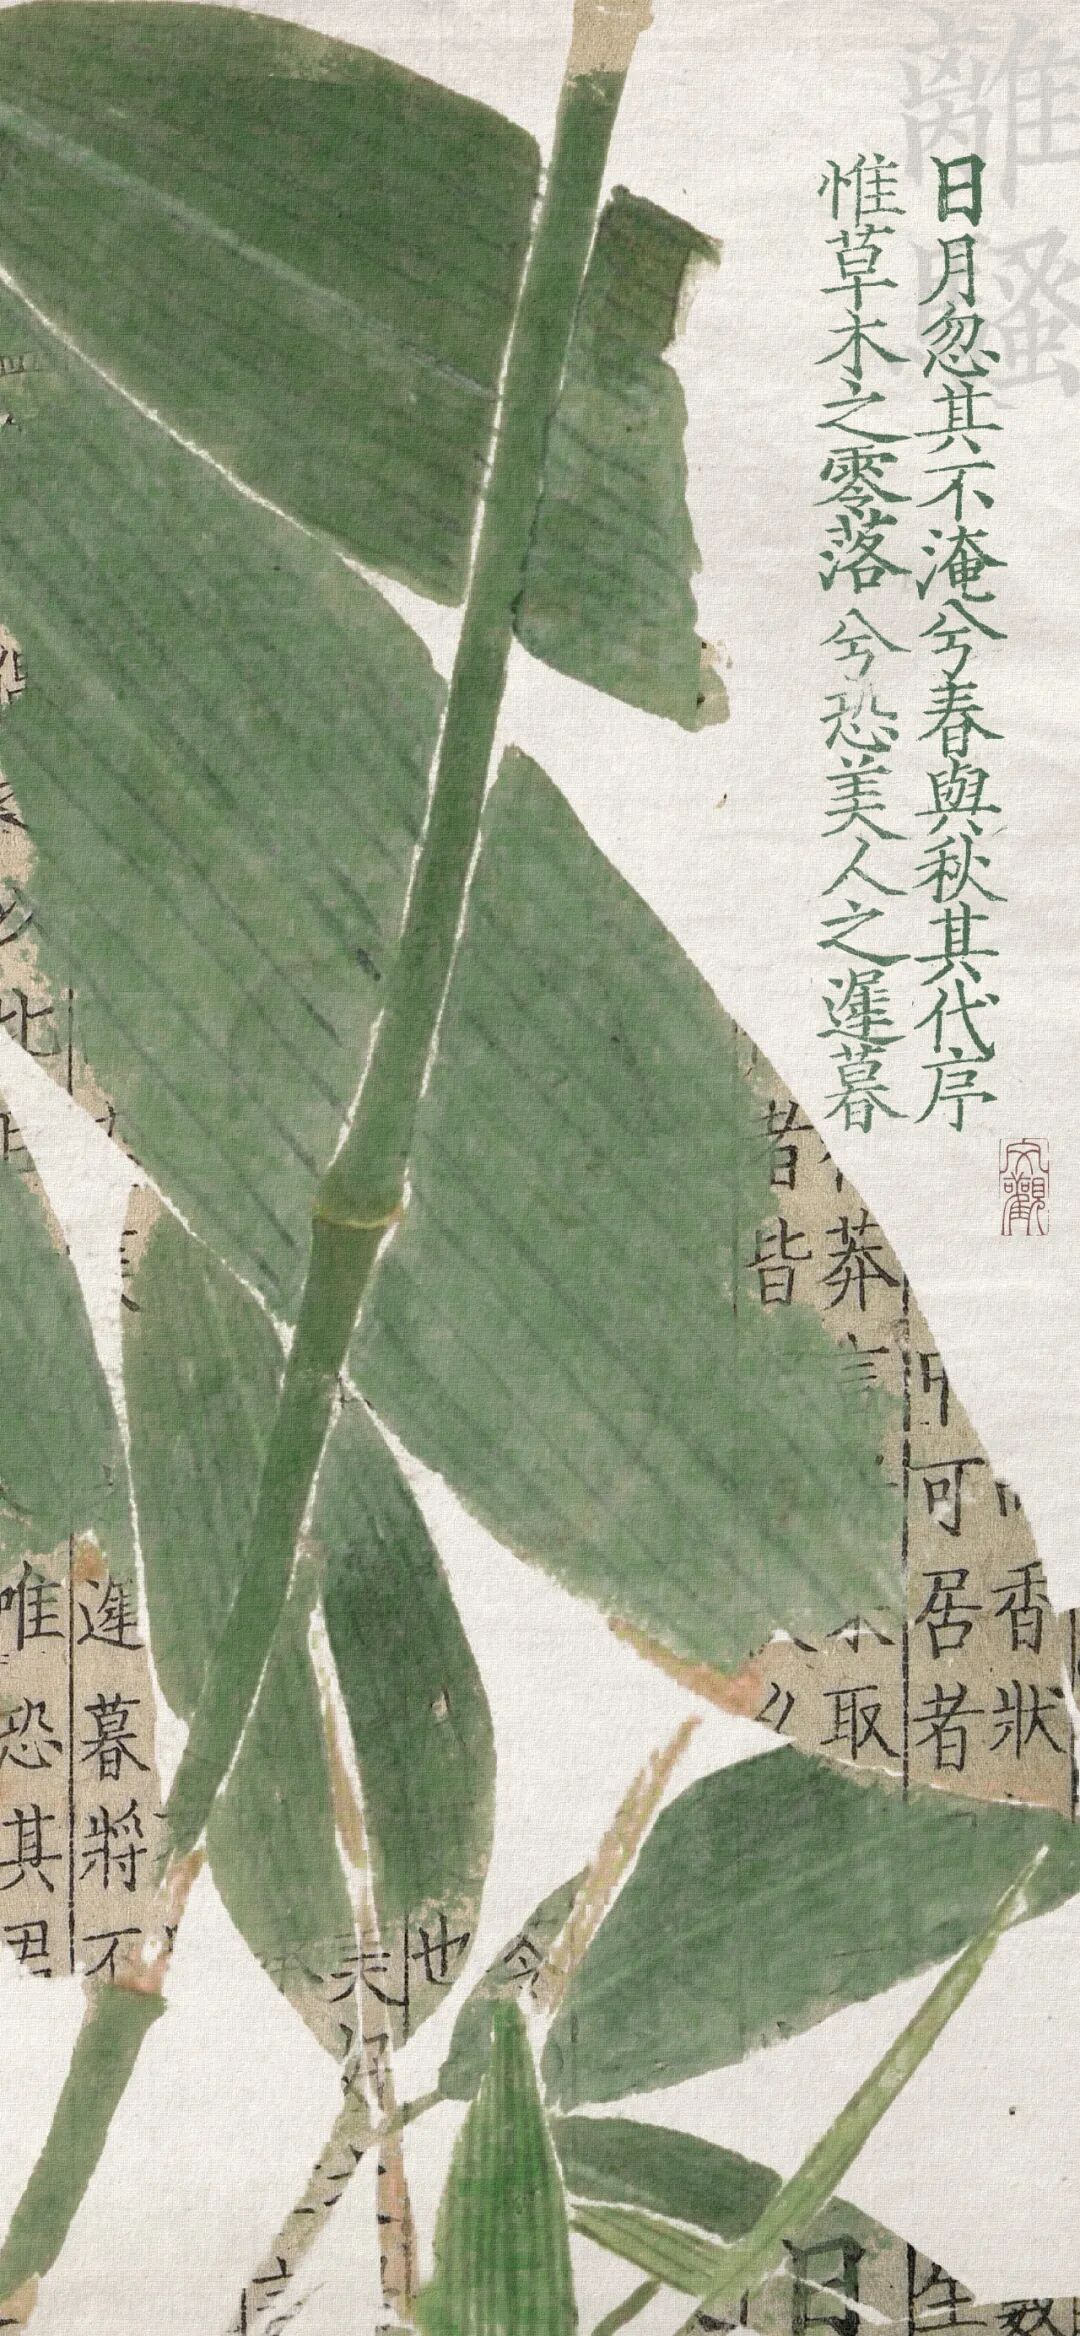 離騷
日月忽其不淹兮春與秋其代序
惟草木之零落兮恐美人之遲暮
文觀
香狀
可居者
莽
取
者皆
也
夫好
令
遲暮將不
唯恐其
日